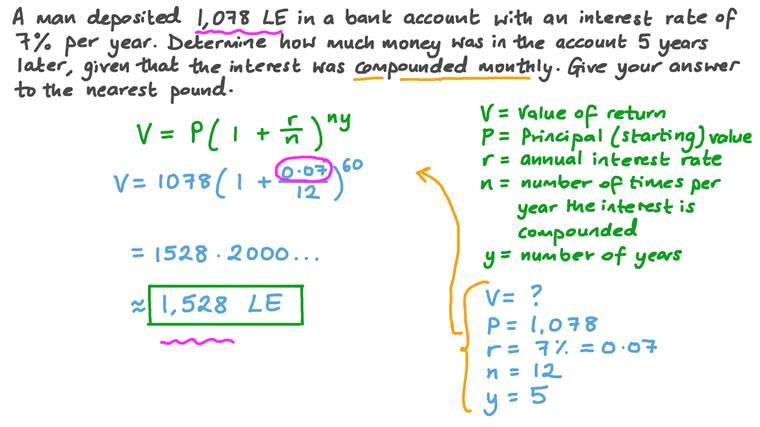 A man deposited 1,078 LE in a bank account with an interest rate of
7% per year. Determine how much money was in the account 5 years
later, given that the interest was compounded monthly. Give your answer
to the nearest pound.
V = P(1 + r/n)^ny
V = 1078(1 + 0.07/12)^60
= 1528.2000...
≈ 1,528 LE
V = Value of return
P = Principal (starting) value
r = annual interest rate
n = number of times per
year the interest is
compounded
y = number of years
V = ?
P = 1,078
r = 7% = 0.07
n = 12
y = 5